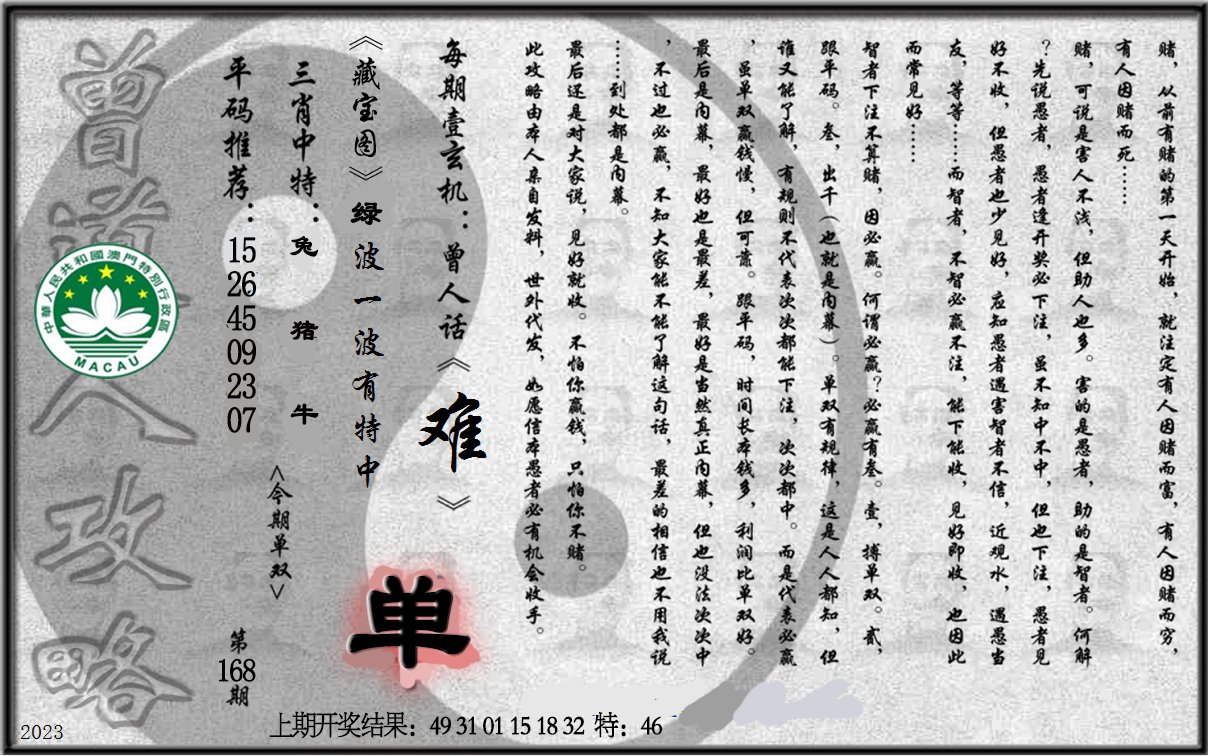 赌，从前有赌的第一天开始，就注定有人因赌而富，有人因赌而穷，
有人因赌而死……
赌，可说是害人不浅，但助人也多。害的是愚者，助的是智者。何解
？先说愚者，愚者逢开奖必下注，虽不知中不中，但也下注，愚者见
好不收，但愚者也少见好，应知愚者遇害智者不信，近观水，遇愚当
友，等等……而智者，不智必赢不注，能下能收，见好即收，也因此
而常见好……
智者下注不算赌，因必赢。何谓必赢？必赢有叁。壹，搏单双。贰，
跟平码。叁，出千（也就是内幕）。单双有规律，这是人人都知，但
谁又能了解，有规则不代表次次都能下注，次次都中。而是代表必赢
，虽单双赢钱慢，但可靠。跟平码，时间长本钱多，利润比单双好。
最后是内幕，最好也是最差，最好是当然真正内幕，但也没法次次中
，不过也必赢，不知大家能不能了解这句话，最差的相信也不用我说
……到处都是内幕。
最后还是对大家说，见好就收。不怕你赢钱，只怕你不赌。
此攻略由本人亲自发料，世外代发，如愿信本愚者必有机会收手。
每期壹玄机：曾人话《难》
《藏宝图》绿波一波有特中
三肖中特：兔 猪 牛
<今期单双>
单
平码推荐：15 26 45 09 23 07
第168期
曾道人攻略
中華人民共和國澳門特別行政區
MACAU
上期开奖结果：49 31 01 15 18 32 特：46
2023